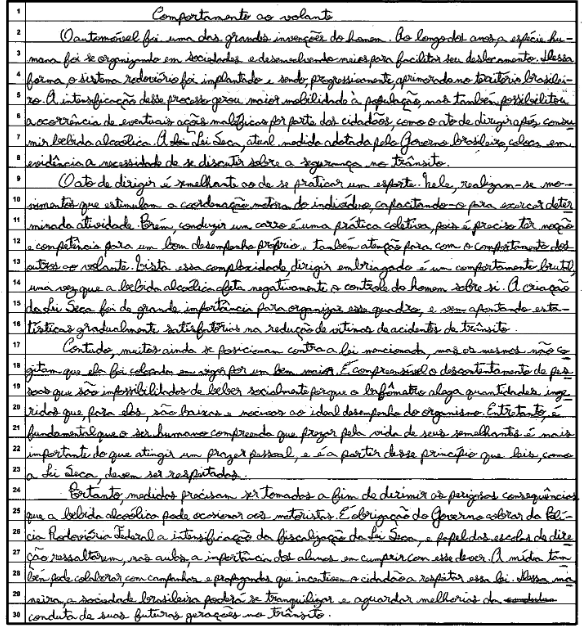 1 Comportamento ao volante
2 O automóvel foi uma das grandes invenções do homem. Ao longo dos anos, a espécie hu-
3 mana foi se organizando em sociedades e desenvolvendo meios para facilitar seu deslocamento. Dessa
4 forma, o sistema rodoviário foi implantado e sendo, progressivamente, aprimorado no território brasilei-
5 ro. A intensificação desse processo gerou maior mobilidade à população, mas também possibilitou
6 a ocorrência de eventuais ações maléficas por parte dos cidadãos, como o ato de dirigir após consu-
7 mir bebida alcoólica. A Lei Seca, atual medida adotada pelo Governo brasileiro, coloca em
8 evidência a necessidade de se discutir sobre a segurança no trânsito.
9 O ato de dirigir é semelhante ao de se praticar um esporte. Nele, realizam-se mo-
10 vimentos que estimulam a coordenação motora do indivíduo, capacitando-o para exercer deter
11 minada atividade. Porém, conduzir um carro é uma prática coletiva, pois é preciso ter noção
12 e competência para um bom desempenho próprio e também atenção para com o comportamento dos
13 outros ao volante. Vista essa complexidade, dirigir embriagado é um comportamento brutal,
14 uma vez que a bebida alcoólica afeta negativamente o controle do homem sobre si. A criação
15 da Lei Seca foi de grande importância para organizar esse quadro, e vem apontando esta-
16 tísticas gradualmente satisfatórias na redução de vítimas de acidentes de trânsito.
17 Contudo, muitos ainda se posicionam contra a lei mencionada, mas os mesmos não co-
18 gitam que ela foi colocada em vigor por um bem maior. É compreensível o descontentamento de pes
19 soas que são impossibilitadas de beber socialmente porque o bafômetro alega quantidades inge-
20 ridas que, para elas, são baixas e nocivas ao ideal desempenho do organismo. Entretanto, é
21 fundamental que o ser humano compreenda que prezar pela vida de seus semelhantes é mais
22 importante do que atingir um prazer pessoal, e é a partir desse princípio que leis, como
23 a Lei Seca, devem ser respeitadas.
24 Portanto, medidas precisam ser tomadas a fim de dirimir as perigosas consequências
25 que a bebida alcoólica pode ocasionar aos motoristas. É obrigação do Governo cobrar da Polí-
26 cia Rodoviária Federal a intensificação da fiscalização da Lei Seca, e papel das escolas de dire
27 ção ressaltarem, nas aulas, a importância dos alunos em cumprir com esse dever. A mídia tam
28 bém pode colaborar com campanhas e propagandas que incentivem o cidadão a respeitar essa lei. Dessa ma
29 neira, a sociedade brasileira poderá se tranquilizar e aguardar melhorias da
30 conduta de suas futuras gerações no trânsito.